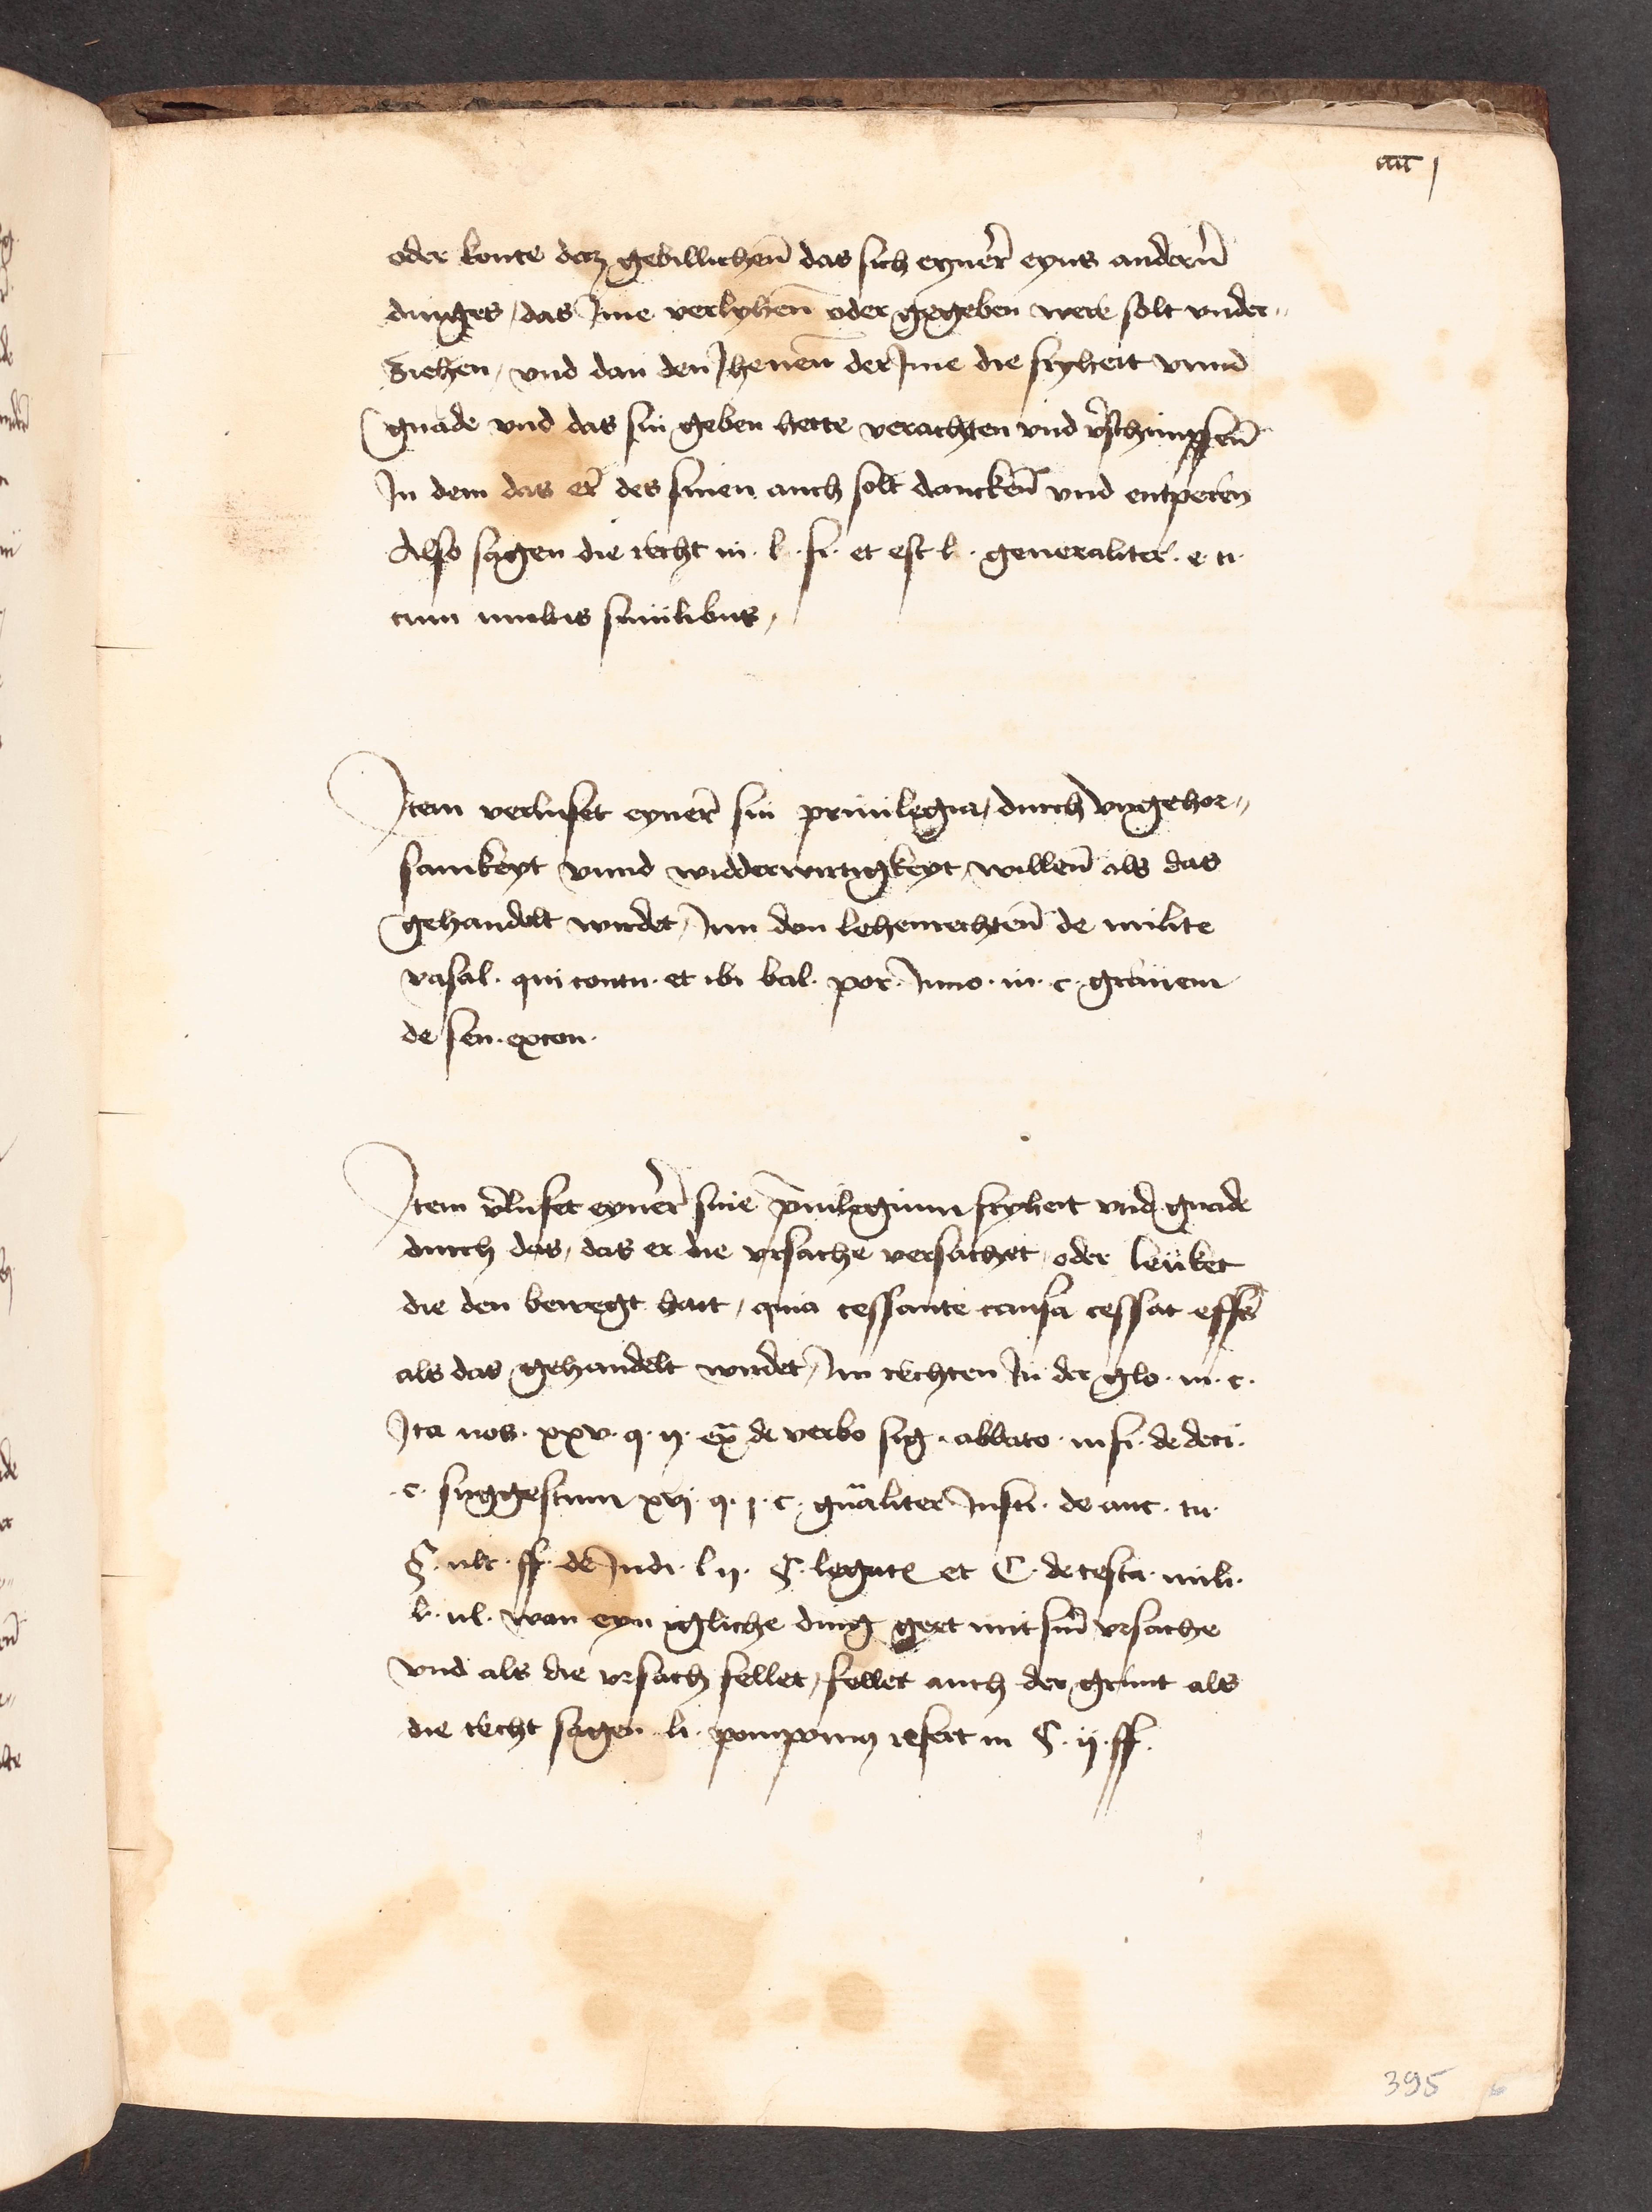 iiii
oder konte daz gebillichen̄ das sich eyner eyns andern̄
dinges, das Ime verlyhen̄ oder gegeben were solt vnder„
ziehen, vnd dan den Jhenen̄ der Ime die fryheit vnnd
gnade vnd das sin geben hette verachten vnd v̄schimpfen̄
In dem das er des sinen auch solt dancken̄ vnd entperen
Also sagen die recht in · l · fi · et est l · generaliter · e · ti ·
cum multis similibus,
Item verluset eyner sin priuilegia, durch vngehor„
samkeyt vnnd widderwertigkeyt, willen̄ als das
gehandelt wirdet, Inn den lehenrechten̄ de milite
vasal · qui contu · et ibi bal · por · Inno · in · c · grauem
de sen · excon ·
Item v̄luset eyner sine p̄uilegium fryheit vnd gnade
durch das, das er die vrsache versachet, oder leuket
die den bewegt hatt, quia cessante causa cessat effc̄
als das gehandelt wirdet, Im rechten In der glo · in · c ·
Ita nos · xxv · q · ij · ex̄ de verbo sig · abbate · in fi · de deci ·
· c · suggestum xvj · q · j · c · gn̄aliter Insti · de auc · tu ·
§ · ult · ff · de Iudi · l ij · § · legatꝭ et C · de testa · mili ·
l · ul · wan eyn igliche ding gert mit sin̄ vrsache
vnd als die vrsach fellet, fellet auch der grunt als
die recht sagen · li · pomponiꝰ refert in § · ij · ff ·
395